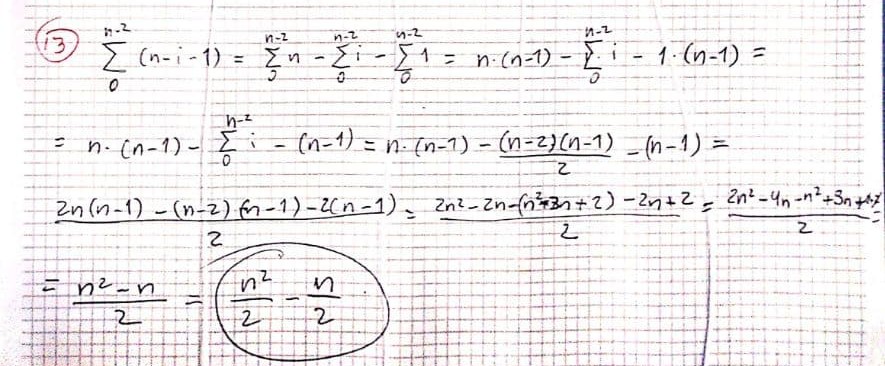 13) \sum_{0}^{n-2} (n-i-1) = \sum_{0}^{n-2} n - \sum_{0}^{n-2} i - \sum_{0}^{n-2} 1 = n·(n-1) - \sum_{0}^{n-2} i - 1·(n-1) =
= n·(n-1) - \sum_{0}^{n-2} i - (n-1) = n·(n-1) - \frac{(n-2)(n-1)}{2} - (n-1) =
\frac{2n(n-1) - (n-2)·(n-1) - 2(n-1)}{2} = \frac{2n²-2n-(n²-3n+2)-2n+2}{2} = \frac{2n²-4n-n²+3n}{2} =
= \frac{n²-n}{2} = \frac{n²}{2} - \frac{n}{2}